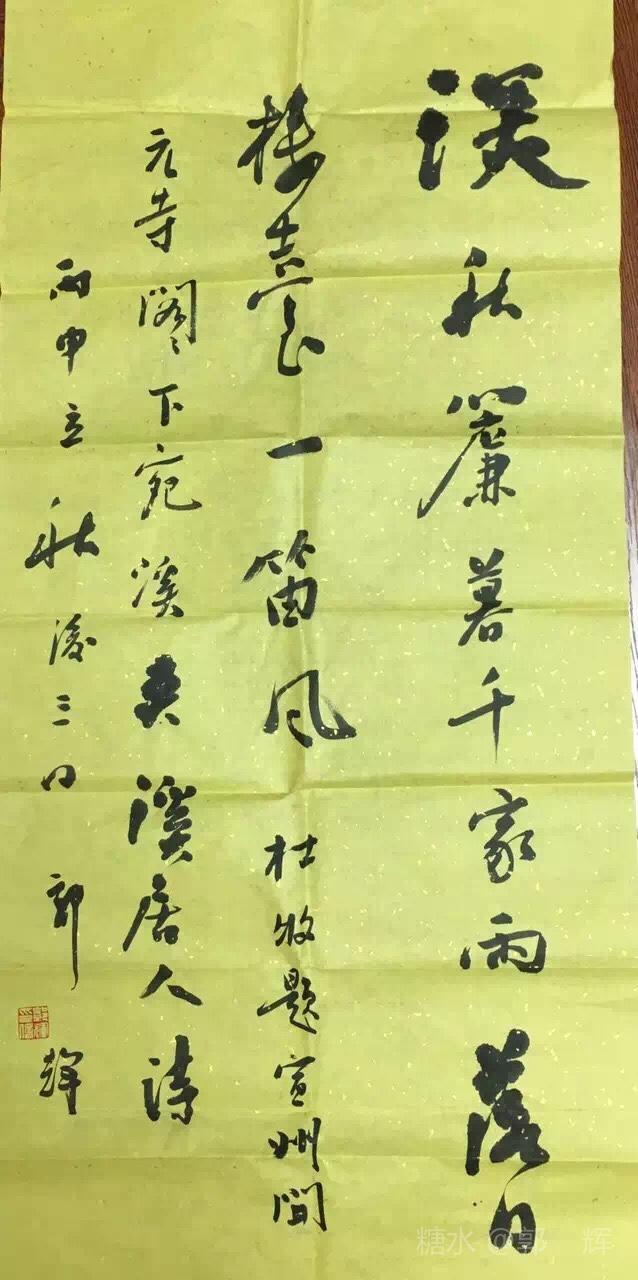 深秋簾暮千家雨落日
樓臺一笛風 杜牧題宣州開
元寺閣〻下宛溪夾溪居人詩
丙申立秋後三日 郭輝
糖水 @郭 辉